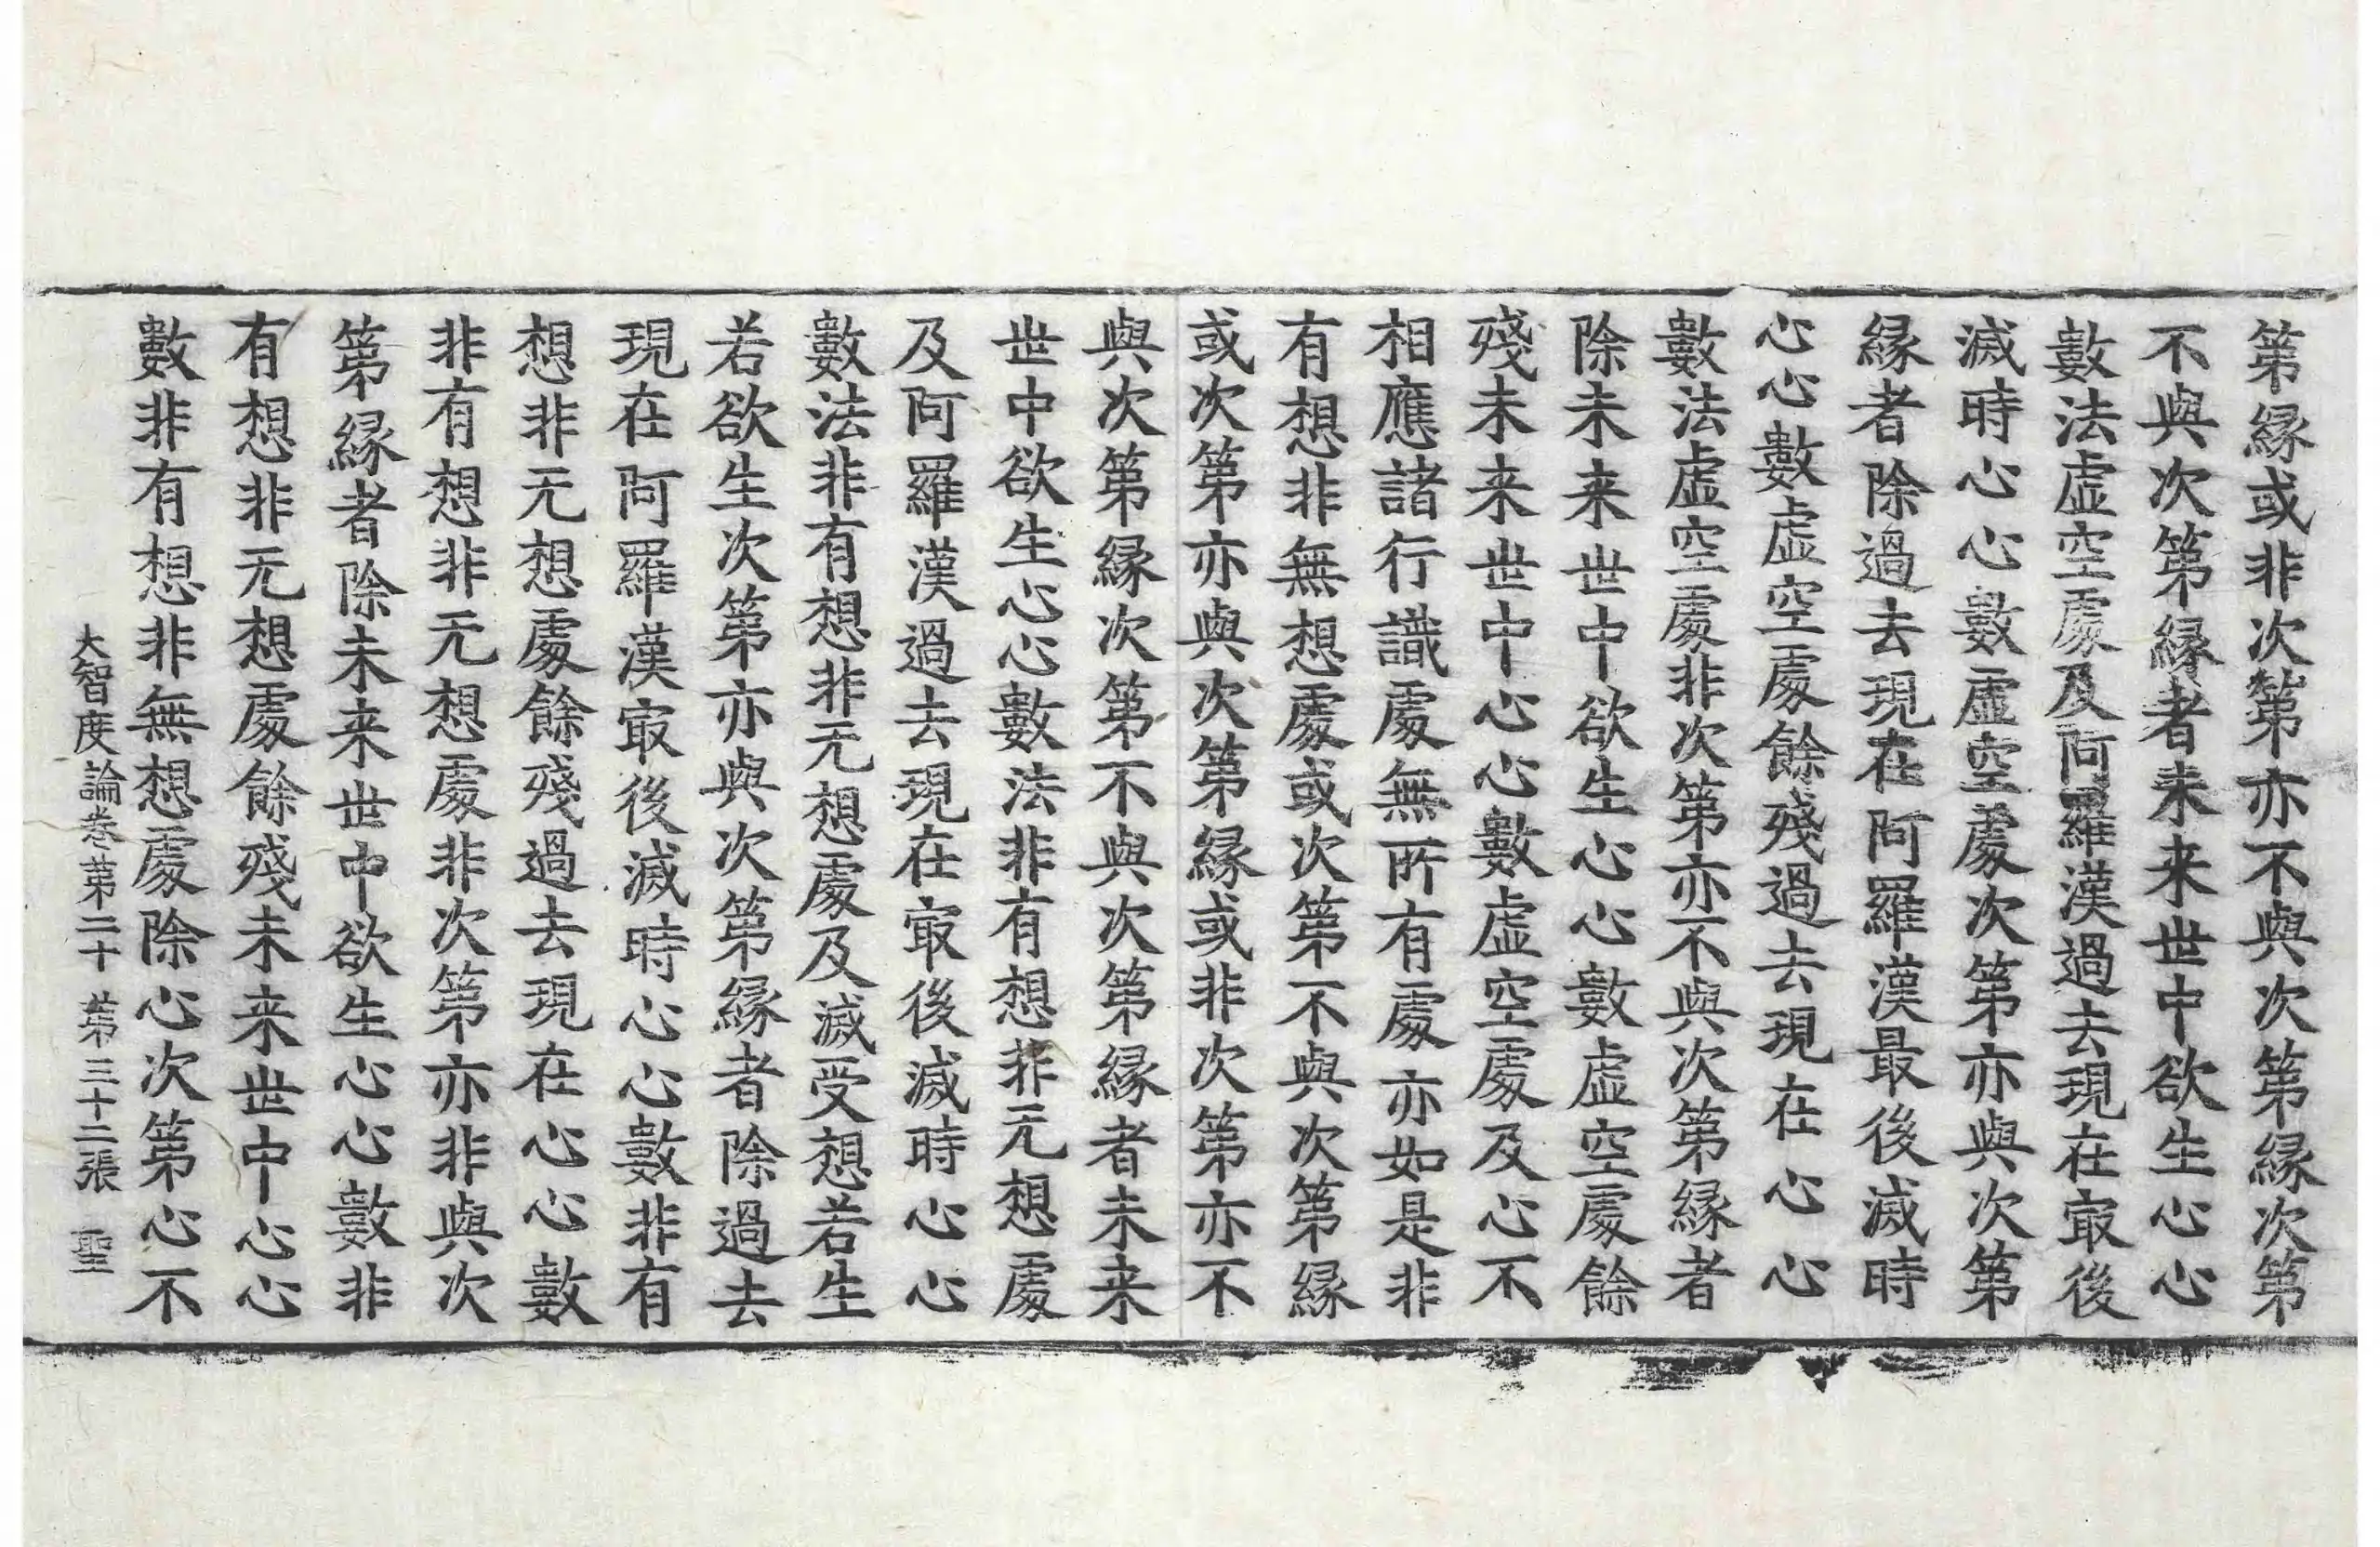 第縁或非次第亦不與次第縁次第
不與次第縁者未来世中欲生心心
數法虛空處及阿羅漢過去現在㝡後
滅時心心數虛空處次第亦與次第
縁者除過去現在阿羅漢最後滅時
心心數虛空處餘殘過去現在心心
數法虛空處非次第亦不與次第縁者
除未来世中欲生心心數虛空處餘
殘未来世中心心數虛空處及心不
相應諸行識處無所有處亦如是非
有想非無想處或次第不與次第縁
或次第亦與次第縁或非次第亦不
與次第縁次第不與次第縁者未来
世中欲生心心數法非有想非无想處
及阿羅漢過去現在㝡後滅時心心
數法非有想非无想處及滅受想若生
若欲生次第亦與次第縁者除過去
現在阿羅漢㝡後滅時心心數非有
想非无想處餘殘過去現在心心數
非有想非无想處非次第亦非與次
第縁者除未来世中欲生心心數非
有想非无想處餘殘未来世中心心
數非有想非無想處除心次第心不
大智度論卷第二十 第三十二張 聖